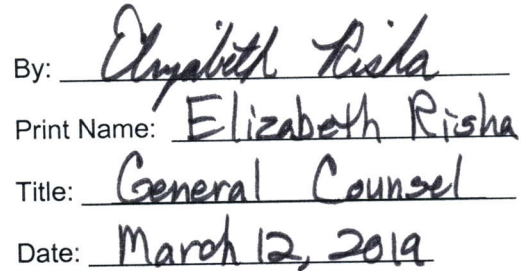 By: Elizabeth Risha
Print Name: Elizabeth Risha
Title: General Counsel
Date: March 12, 2019